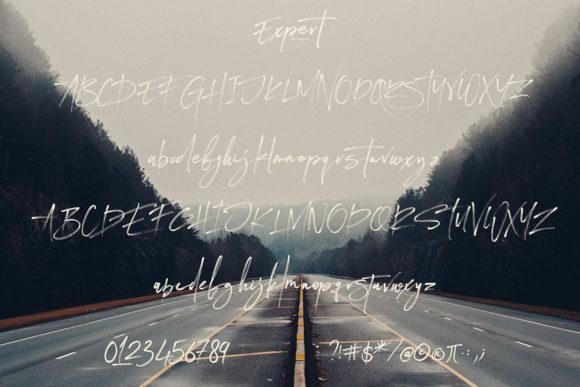 Expert
ABCDEFGHIJKLMNOPQRSTUVWXYZ
abcdefghijklmnopqrstuvwxyz
ABCDEFGHIJKLMNOPQRSTUVWXYZ
abcdefghijklmnopqrstuvwxyz
0123456789